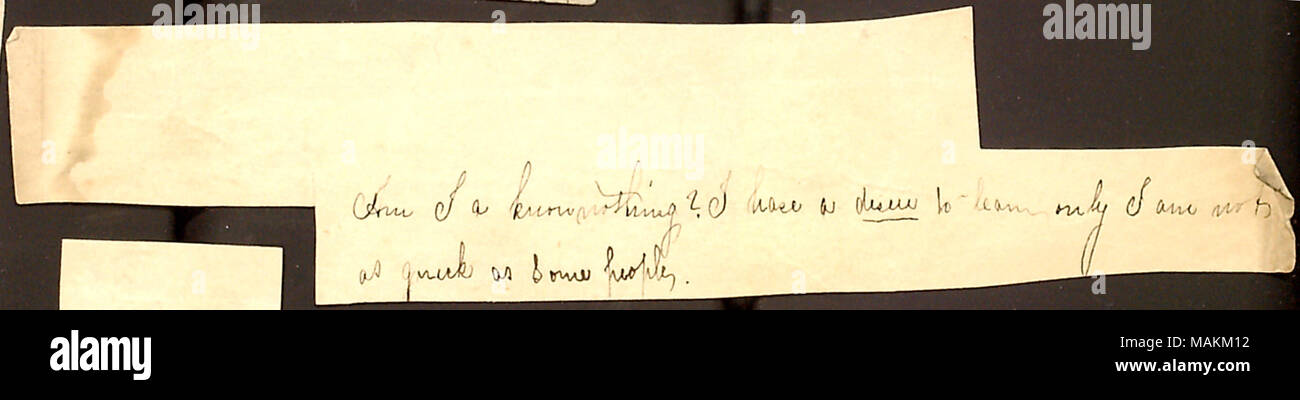 Am I a knownothing? I have a desire to learn only I am not
as quick as some people.
alamy stock photo
Image ID: MAKM12
www.alamy.com